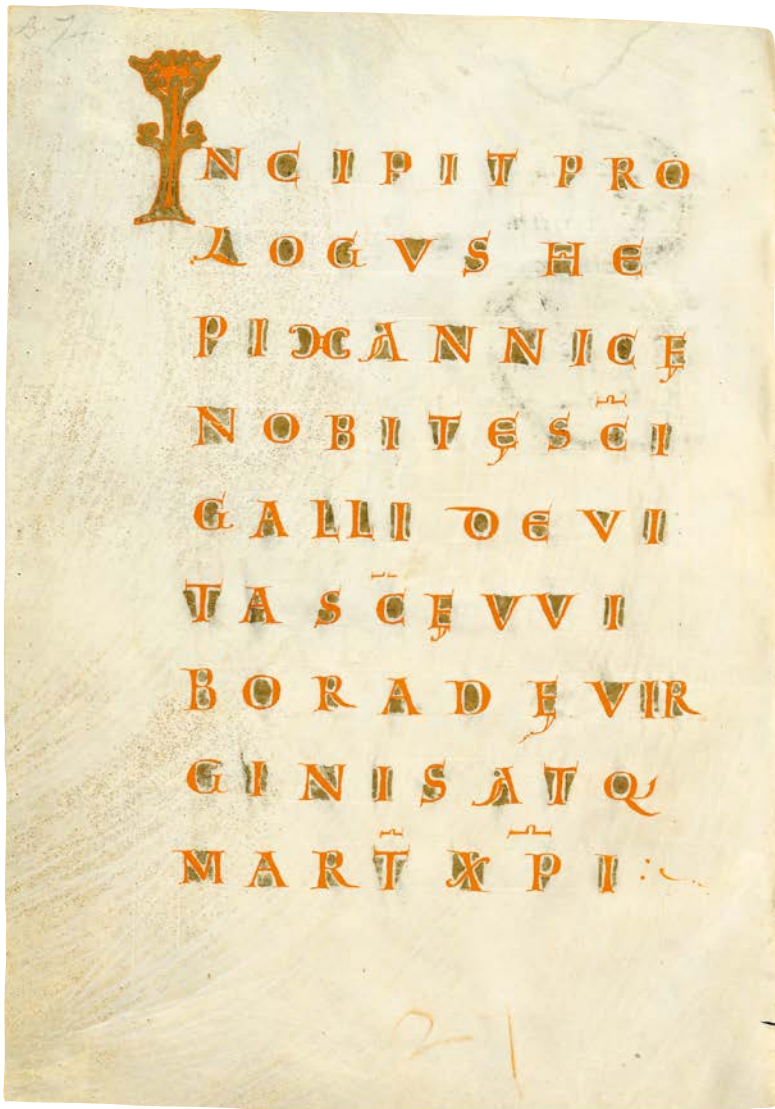 INCIPIT PRO
LOGVS HE
PIMANNICĘ
NOBITĘ SC̄I
GALLI DE VI
TA SC̄Ę VVI
BORADĘ VIR
GINIS ATQ
MART̄ XP̄I :~
2-1